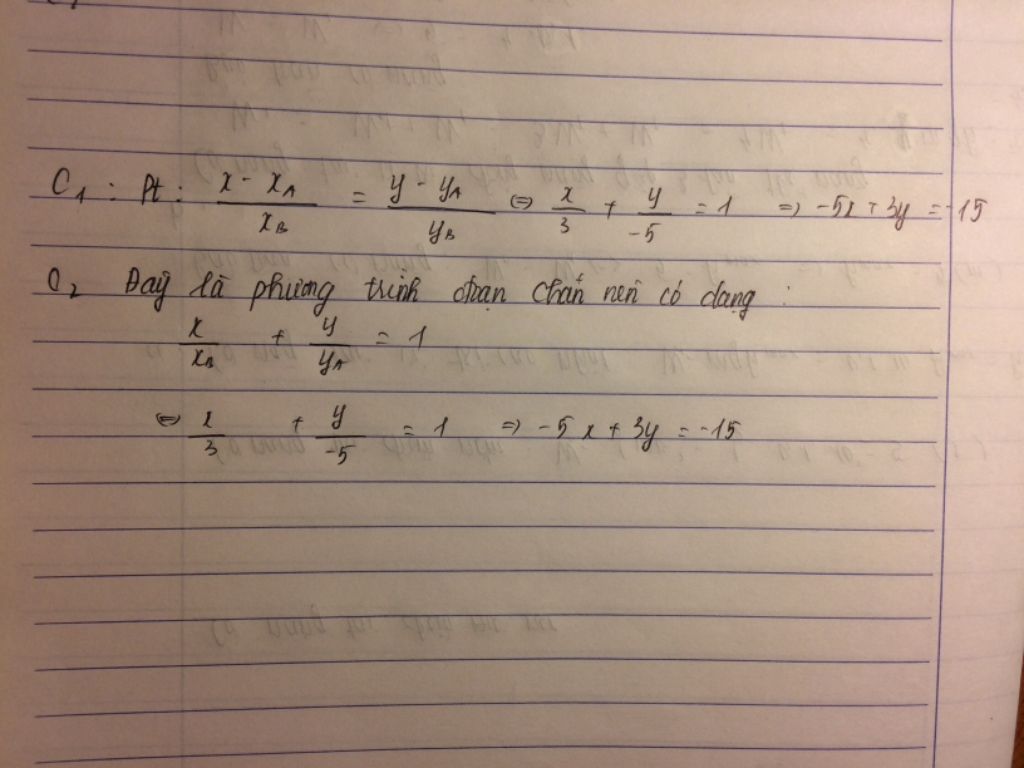 C1 : Pt : (x - xA)/xB = (y - yA)/yB ⇔ x/3 + y/-5 = 1 ⇒ -5x + 3y = -15
C2 Đây là phương trình đoạn chắn nên có dạng :
x/xB + y/yA = 1
⇔ x/3 + y/-5 = 1 ⇒ -5x + 3y = -15